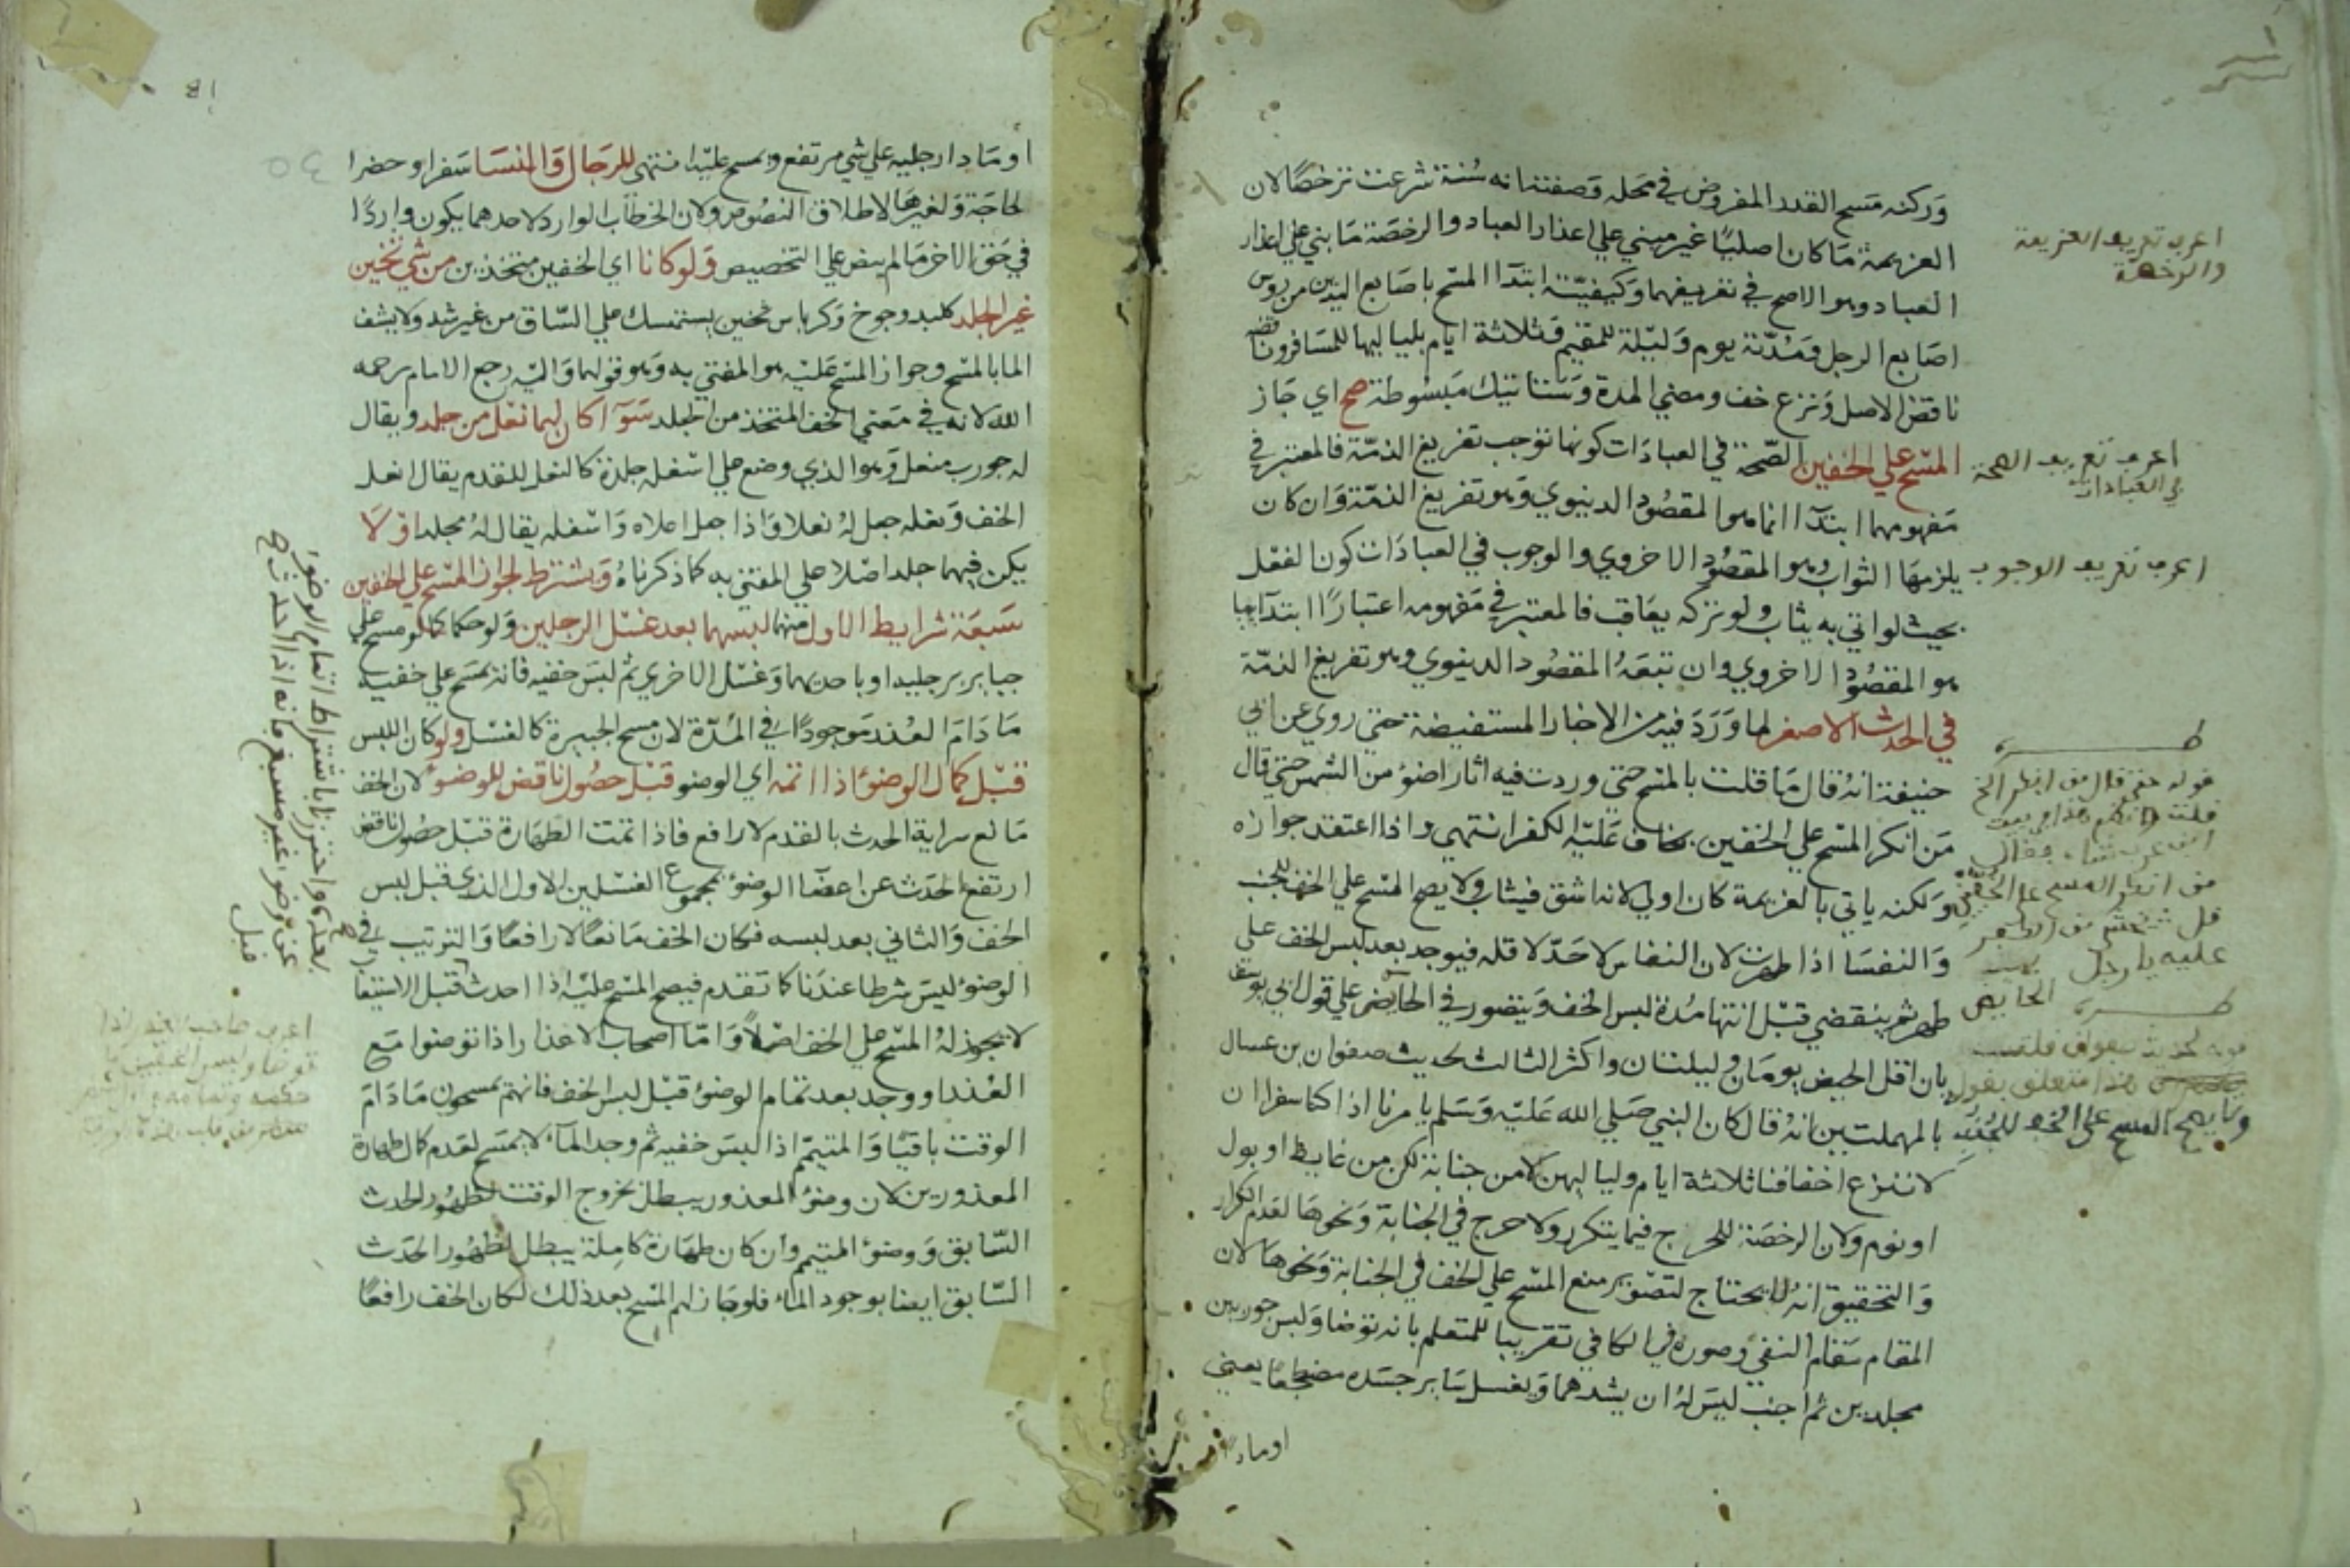 وركنه مسح القدر المفروض في محله وصفته انه سنة شرعت ترخصا لان
العزيمة ما كان اصليا غير مبني علي اعذار العباد والرخصة ما بني علي اعذار
العباد وهو الاصح في تعريفهما وكيفيته ابتدآ المسح باصابع اليدين من روس
اصابع الرجل ومدته يوم وليلة للمقيم وثلاثة ايام بلياليها للمسافر وناقضه
ناقض الاصل ونزع خف ومضي المدة وستاتيك مبسوطة صح اي جاز
المسح علي الخفين الصحة في العبادات كونها توجب تفريغ الذمة فالمعتبر في
مفهومهما ابتدآ انما هو المقصود الدنيوي وهو تفريغ الذمة وان كان
يلزمها الثواب وهو المقصود الاخروي والوجوب في العبادات كون الفعل
بحيث لو اتي به يثاب ولو تركه يعاقب فالمعتبر في مفهومه اعتبارا ابتدآئيا
هو المقصود الاخروي وان تبعه المقصود الدنيوي وهو تفريغ الذمة
في الحدث الاصغر لما ورد فيه من الاخبار المستفيضة حتي روي عن ابي
حنيفة انه قال ما قلت بالمسح حتي وردت فيه اثار اضوء من الشمس حتي قال
من انكر المسح علي الخفين يخاف عليه الكفر انتهي واذا اعتقد جوازه
ولكنه ياتي بالعزيمة كان اولي لانه اشق فيثاب ولا يصح المسح علي الخف للجنب
والنفسا اذا طهرت لان النفاس لا حد لاقله فيوجد بعد لبس الخف علي
طهر ثم ينقضي قبل انتها مدة لبس الخف ويتصور في الحائض علي قول ابي يوسف
بان اقل الحيض يومان وليلتان واكثر الثالث لحديث صفوان بن عسال
بالمهملتين انه قال كان النبي صلي الله عليه وسلم يامرنا اذا كنا سفرا ان
لا ننزع اخفافنا ثلاثة ايام ولياليهن لا من جنابة لكن من غايط او بول
او نوم ولان الرخصة للحرج فيما يتكرر ولا حرج في الجنابة ونحوها لعدم التكرار
والتحقيق انه لا يحتاج لتصوير منع المسح علي الخف في الجنابة ونحوها لان
المقام مقام النفي وصوره في الكافي تقريبا للمتعلم بانه توضا ولبس جوربين
مجلدين ثم اجنب ليس له ان يشدهما ويغسل ساير جسده مضطجعا يعني
او ماد
اعرف تعريف العزيمة
والرخصة
اعرف تعريف الصحة
في العبادات
اعرف تعريف الوجوب
قوله حتي قال من انكر الخ
من انكر المسح علي الخفين
عليه يا رجل
الحايض
هذا متعلق بقول
ولا يصح المسح علي الخف للجنب
او مادا رجليه علي شي مرتفع ويمسح عليه انتهي للرجال والنسا سفرا وحضرا
لحاجة ولغيرها لاطلاق النصوص ولان الخطاب الوارد لاحدهما يكون واردا
في حق الاخر ما لم ينص علي التخصيص ولو كانا اي الخفين متخذين من شي ثخين
غير الجلد كلبد وجوخ وكرباس ثخين يستمسك علي الساق من غير شد ولا يشف
الما بالمسح وجواز المسح عليه هو المفتي به وهو قولهما واليه رجع الامام رحمه
الله لانه في معني الخف المتخذ من الجلد سوآ كان لهما نعل من جلد ويقال
له جورب منعل وهو الذي وضع علي اسفله جلدة كالنعل للقدم يقال انعل
الخف ونعله جعل له نعلا واذا جعل اعلاه واسفله يقال له مجلد او لا
يكن فيهما جلد اصلا علي المفتي به كما ذكرناه ويشترط لجواز المسح علي الخفين
سبعة شرايط الاول منها لبسهما بعد غسل الرجلين ولو حكما كما لو مسح علي
جباير برجليه او باحديهما وغسل الاخري ثم لبس خفيه فانه يمسح علي خفيه
ما دام العذر موجودا في المدة لان مسح الجبيرة كالغسل ولو كان اللبس
قبل كمال الوضوء اذا اتمه اي الوضو قبل حصول ناقض للوضوء لان الخف
مانع سراية الحدث بالقدم لا رافع فاذا تمت الطهارة قبل حصول ناقض
ارتفع الحدث عن اعضآ الوضوء بمجموع الغسلين الاول الذي قبل لبس
الخف والثاني بعد لبسه فكان الخف مانعا لا رافعا والترتيب في
الوضوء ليس شرطا عندنا كما تقدم فيصح المسح عليه اذا احدث قبل الاستيفا
لا يجوز له المسح علي الخف اصلا واما اصحاب الاعذار اذا توضوا مع
العذر او وجد بعد تمام الوضوء قبل لبس الخف فانهم يمسحون ما دام
الوقت باقيا والمتيمم اذا لبس خفيه ثم وجد المآء لا يمسح لعدم كمال طهارة
المعذورين لان وضوء المعذور يبطل بخروج الوقت لظهور الحدث
السابق ووضوء المتيمم وان كان طهارة كاملة يبطل لظهور الحدث
السابق ايضا بوجود الماء فلو جاز لهم المسح بعد ذلك لكان الخف رافعا
واحترزنا باشتراط اتمام الوضوء
عن وضوء غير مسبغ فانه اذا احدث
قبل